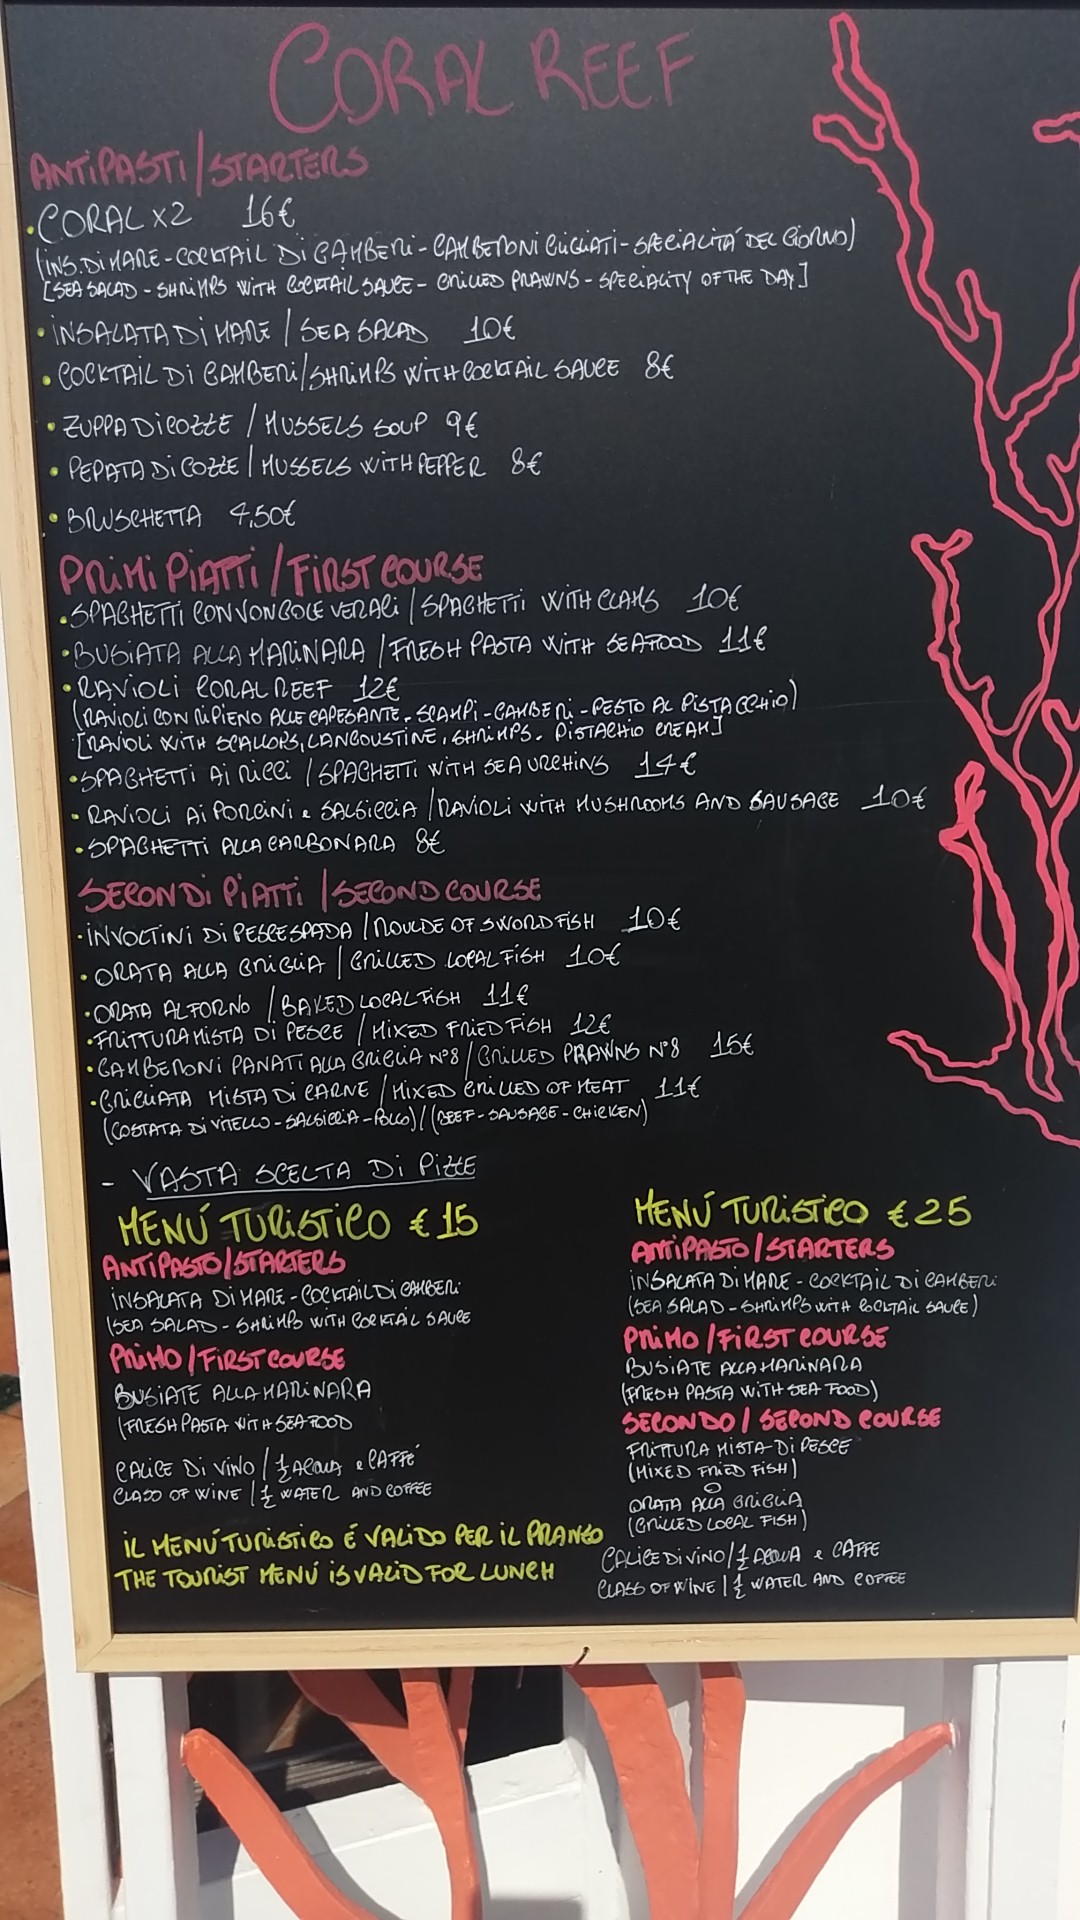 CORAL REEF
ANTIPASTI/STARTERS
• CORAL X2 16€
(INS. DI MARE - COCKTAIL DI GAMBERI - GAMBERONI GLIGLIATI - SPECIALITÁ DEL GIORNO)
[SEA SALAD - SHRIMPS WITH COCKTAIL SAUCE - GRILLED PRAWNS - SPECIALITY OF THE DAY]
• INSALATA DI MARE / SEA SALAD 10€
• COCKTAIL DI GAMBERI/SHRIMPS WITH COCKTAIL SAUCE 8€
• ZUPPA DI COZZE / MUSSELS SOUP 9€
• PEPATA DI COZZE / MUSSELS WITH PEPPER 8€
• BRUSCHETTA 4,50€
PRIMI PIATTI / FIRST COURSE
• SPAGHETTI CON VONGOLE VERACI / SPAGHETTI WITH CLAMS 10€
• BUSIATA ALLA MARINARA / FRESH PASTA WITH SEAFOOD 11€
• RAVIOLI CORAL REEF 12€
(RAVIOLI CON RIPIENO ALLE CAPESANTE - SCAMPI - GAMBERI - PESTO AL PISTACCHIO)
[RAVIOLI WITH SCALLOPS, LANGOUSTINE, SHRIMPS - PISTACHIO CREAM]
• SPAGHETTI AI RICCI / SPAGHETTI WITH SEA URCHINS 14€
• RAVIOLI AI PORCINI e SALSICCIA / RAVIOLI WITH MUSHROOMS AND SAUSAGE 10€
• SPAGHETTI ALLA CARBONARA 8€
SECONDI PIATTI / SECOND COURSE
• INVOLTINI DI PESCE SPADA / ROULDE OF SWORDFISH 10€
• ORATA ALLA GRIGLIA / GRILLED LOCAL FISH 10€
• ORATA AL FORNO / BAKED LOCAL FISH 11€
• FRITTURA MISTA DI PESCE / MIXED FRIED FISH 12€
• GAMBERONI PANATI ALLA GRIGLIA N°8 / GRILLED PRAWNS N°8 15€
• GRIGLIATA MISTA DI CARNE / MIXED GRILLED OF MEAT 11€
(COSTATA DI VITELLO - SALSICCIA - POLLO) / (BEEF - SAUSAGE - CHICKEN)
- VASTA SCELTA DI PIZZE
MENÚ TURISTICO € 15
ANTIPASTO/STARTERS
INSALATA DI MARE - COCKTAIL DI GAMBERI
(SEA SALAD - SHRIMPS WITH COCKTAIL SAUCE
PRIMO / FIRST COURSE
BUSIATE ALLA MARINARA
(FRESH PASTA WITH SEAFOOD
CALICE DI VINO / ½ ACQUA e CAFFÉ
GLASS OF WINE / ½ WATER AND COFFEE
IL MENÚ TURISTICO É VALIDO PER IL PRANZO
THE TOURIST MENÚ IS VALID FOR LUNCH
MENÚ TURISTICO € 25
ANTIPASTO / STARTERS
INSALATA DI MARE - COCKTAIL DI GAMBERI
(SEA SALAD - SHRIMPS WITH COCKTAIL SAUCE)
PRIMO / FIRST COURSE
BUSIATE ALLA MARINARA
(FRESH PASTA WITH SEA FOOD)
SECONDO / SECOND COURSE
FRITTURA MISTA DI PESCE
(MIXED FRIED FISH)
O
ORATA ALLA GRIGLIA
(GRILLED LOCAL FISH)
CALICE DI VINO / ½ ACQUA e CAFFE
GLASS OF WINE / ½ WATER AND COFFEE